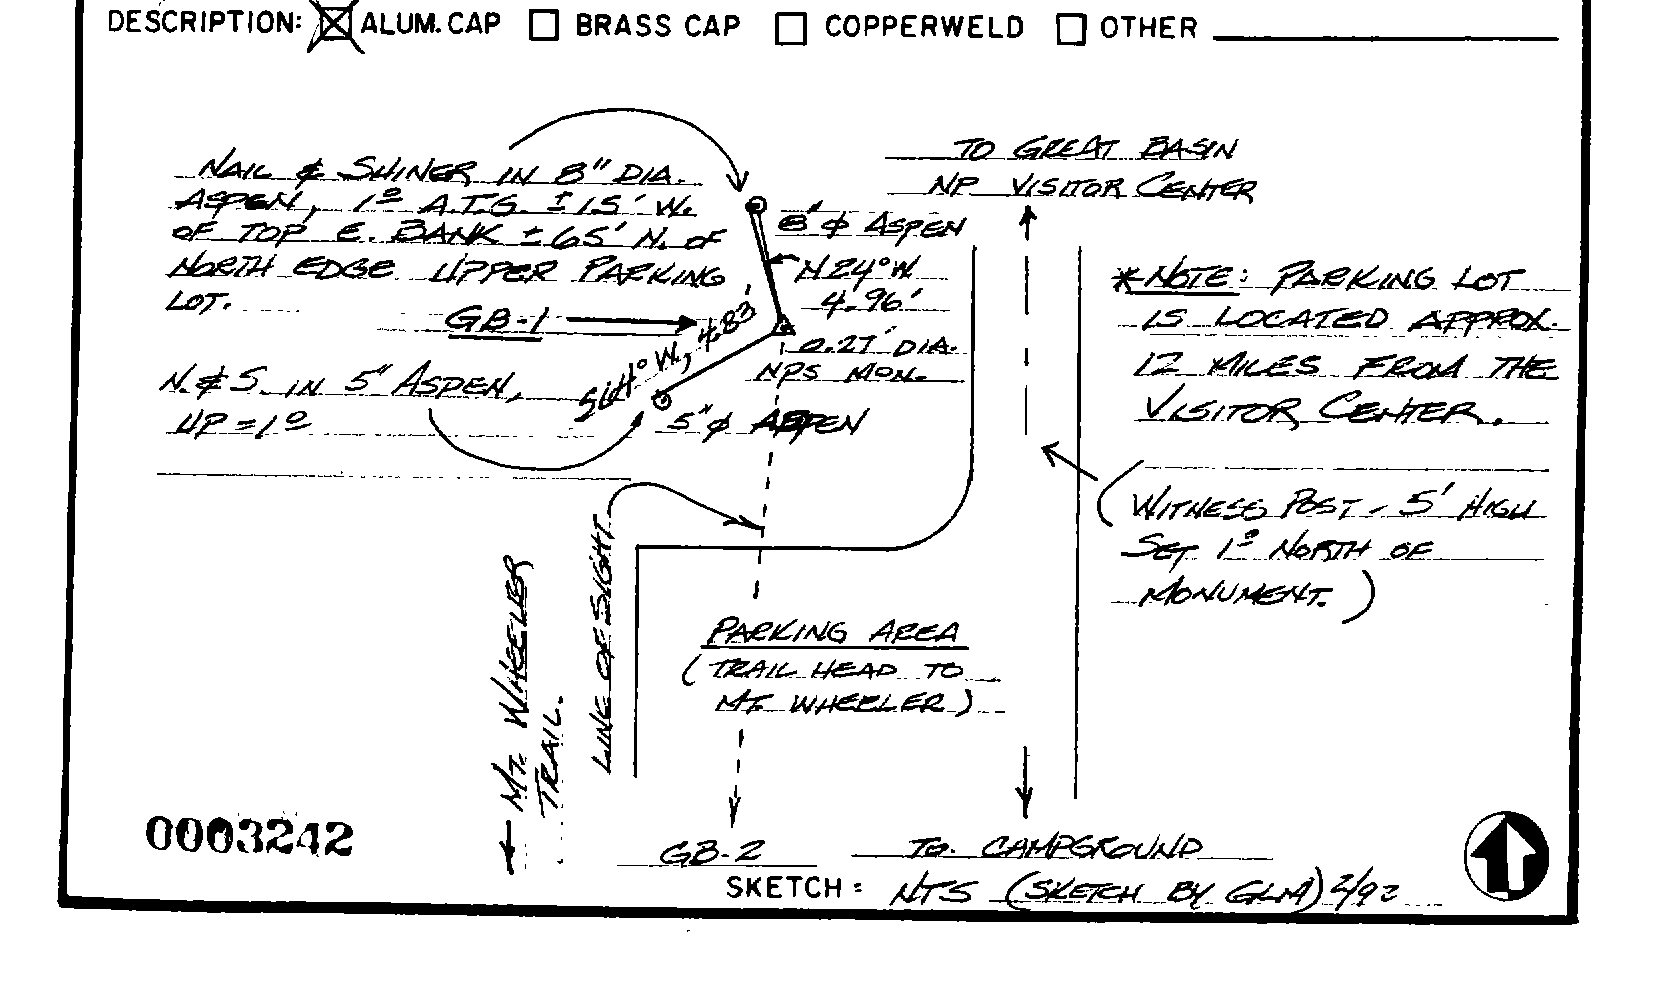 DESCRIPTION: ALUM. CAP BRASS CAP COPPERWELD OTHER
NAIL & SHINER IN 8" DIA.
ASPEN, 1º A.T.G. ±15' W.
OF TOP E. BANK ±65' N. OF
NORTH EDGE UPPER PARKING
LOT.
GB-1
N. & S. IN 5" ASPEN,
UP = 1º
TO GREAT BASIN
NP VISITOR CENTER
8" φ ASPEN
N 24° W
4.96'
0.27' DIA.
NPS MON.
S64° W., 4.83'
5" φ ASPEN
*NOTE: PARKING LOT
IS LOCATED APPROX.
12 MILES FROM THE
VISITOR CENTER.
(WITNESS POST - 5' HIGH
SET 1º NORTH OF
MONUMENT.)
LINE OF SIGHT
MT. WHEELER
TRAIL.
PARKING AREA
(TRAIL HEAD TO
MT. WHEELER)
0003242
GB-2
TO. CAMPGROUND
SKETCH: NTS (SKETCH BY GLM) 2/92